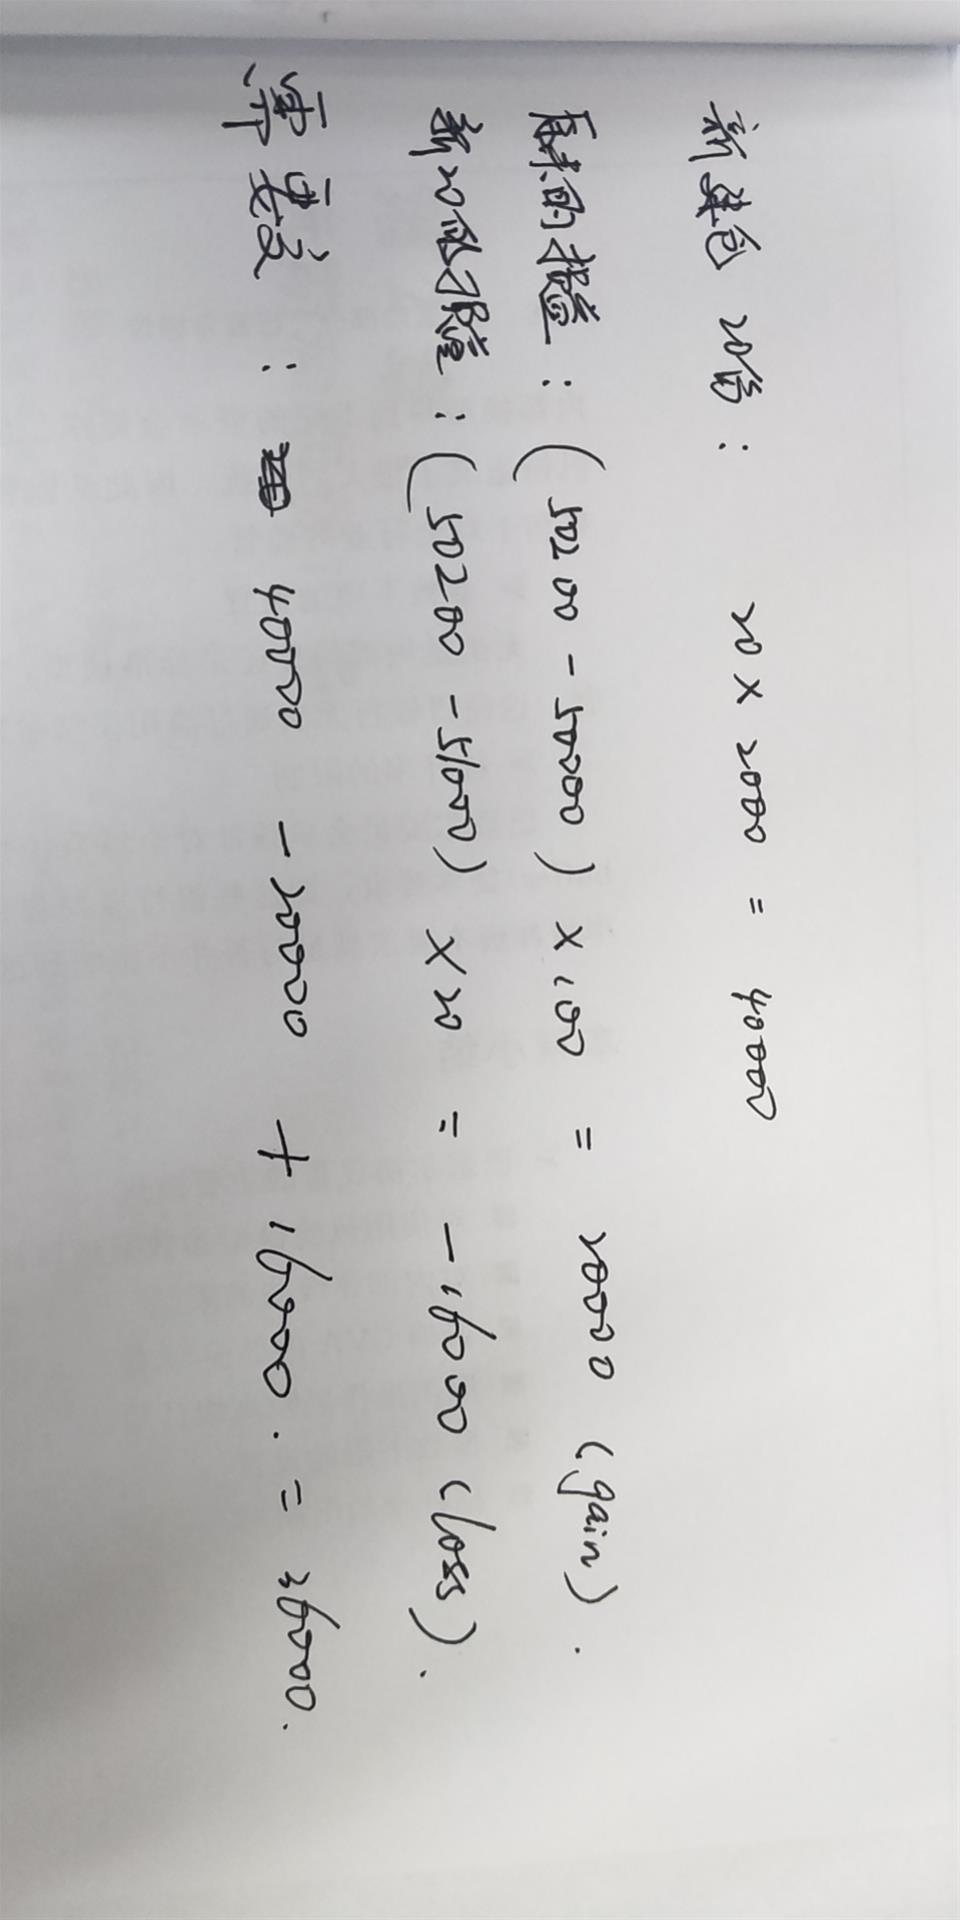 新建仓 20份: 20 × 2000 = 40000
原来的损益: (50200 - 50000) × 100 = 20000 (gain).
新20的损益: (50200 - 51000) × 20 = -16000 (loss).
需要交: 40000 - 20000 + 16000. = 36000.